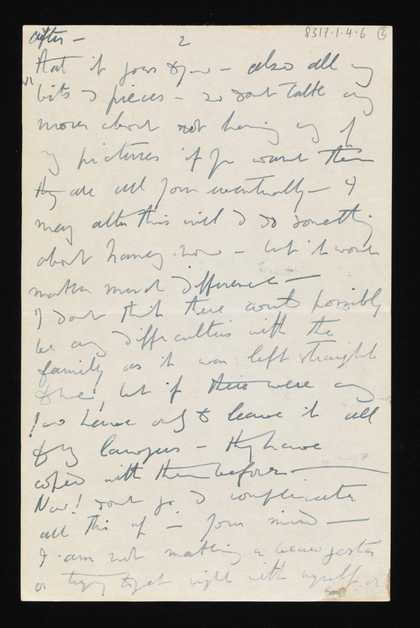 after — 2 8317.1.4.6
that it goes to you — also all my
bits & pieces — so dont talk any
more about not having any of
my pictures if you want them
they are all yours eventually — I
may alter this will & do something
about now — but it wont
make much difference —
I dont think there could possibly
be any difficulties with the
family as it was left straight
to me, but if there were any
you have only to leave it all
to my lawyers — they have
coped with them before —
Now! dont go & complicate
all this up — your mind —
I am not making a beau gester
or trying to get right with myself or